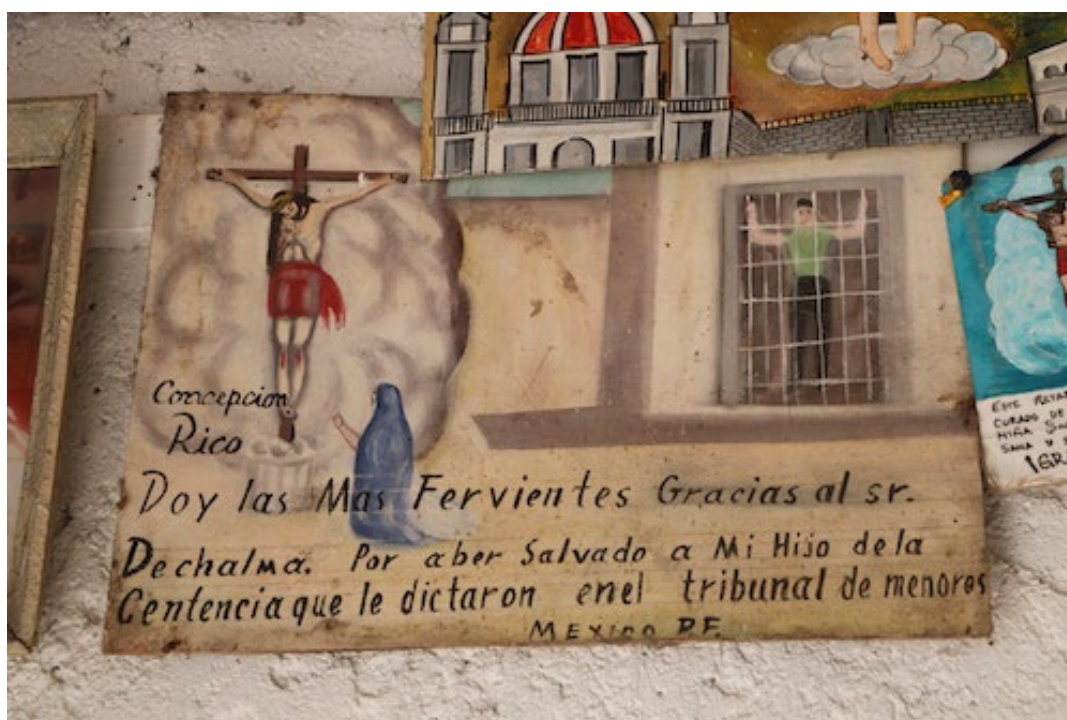 Concepcion
Rico
Doy las Mas Fervientes Gracias al sr.
Dechalma. Por aber Salvado a Mi Hijo dela
Centencia que le dictaron enel tribunal de menores
MEXICO D.F.
ESTE
CURADO DE
NIÑA
SANA Y